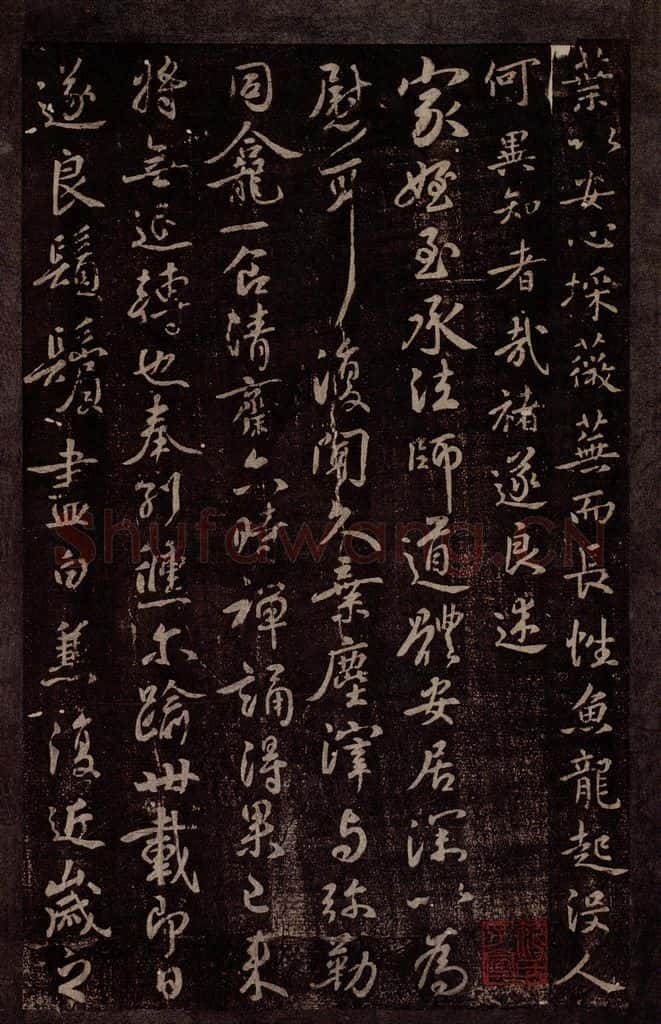 葉以安心採薇蕪而長性魚龍起沒人
何異知者哉褚遂良述
家姪至承法師道體安居深以為
慰耶復聞久棄塵滓與弥勒
同龕一食清齋六時禪誦得果已來
將無退轉也奉別倐尔踰卅載即日
遂良鬚鬢盡白兼復近歲之
Shufawang.CN